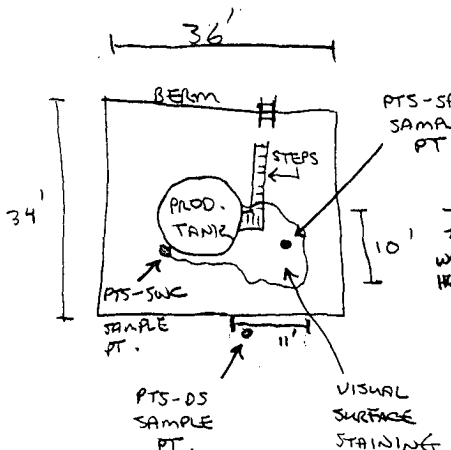 36'
BERM
PTS-SP
SAMPLE
PT
STEPS
PROD.
TANK
34'
10'
PTS-SWC
SAMPLE
PT.
11'
PTS-DS
SAMPLE
PT.
VISUAL
SURFACE
STAINING